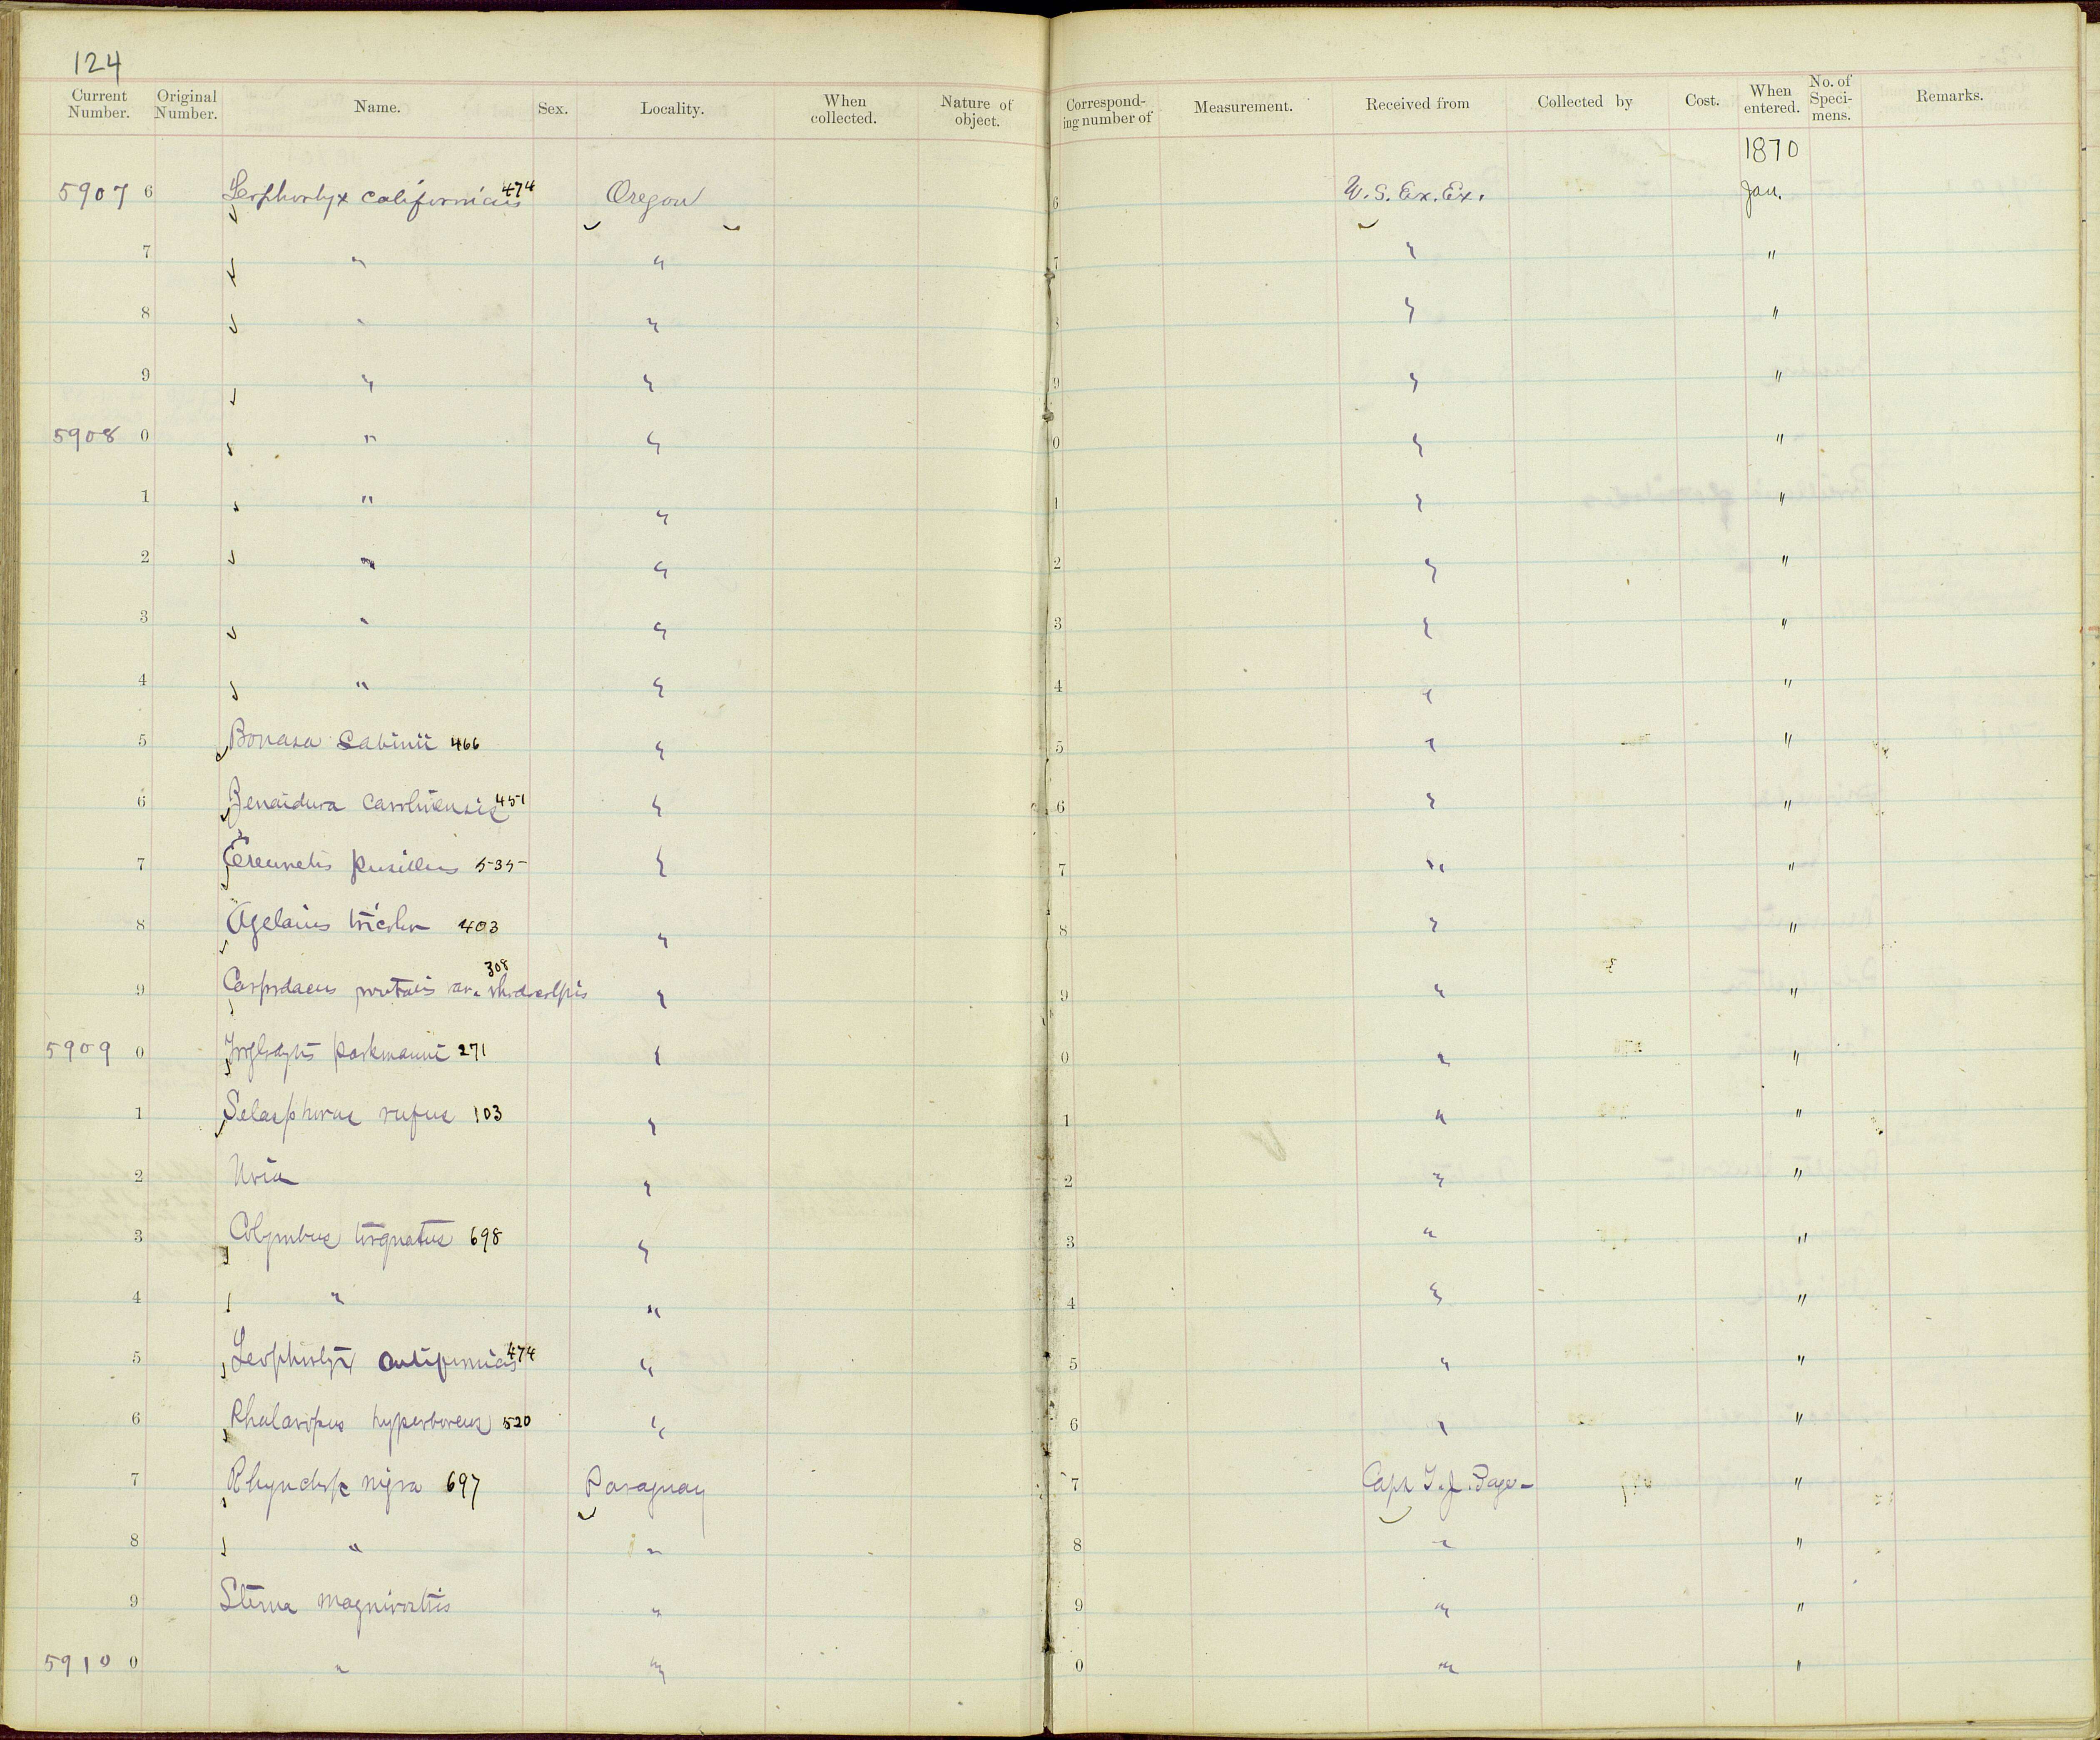 124
Current Number. Original Number. Name. Sex. Locality. When collected. Nature of object. Corresponding number of Measurement. Received from Collected by Cost. When entered. No. of Specimens. Remarks.
1870
5907 6 Lophortyx californicus 474 Oregon 6 U.S. Ex. Ex. Jan.
7 " " 7 " "
8 " " " "
9 " " 9 " "
5908 0 " " 0 " "
1 " " 1 " "
2 " " 2 " "
3 " " 3 " "
4 " " 4 " "
5 Bonasa Sabinii 466 " 5 " "
6 Zenaidura carolinensis 451 " 6 " "
7 Ereunetes pusillus 535 " 7 " "
8 Agelaius tricolor 403 " 8 " "
9 Carpodacus frontalis var. rhodocolpus 308 " 9 " "
5909 0 Troglodytes parkmanni 271 " 0 " "
1 Selasphorus rufus 103 " 1 " "
2 Uria " 2 " "
3 Colymbus torquatus 698 " 3 " "
4 " " 4 " "
5 Lophortyx californicus 474 " 5 " "
6 Phalaropus hyperboreus 520 " 6 " "
7 Rhynchops nigra 697 Paraguay 7 Capt T. J. Page "
8 " " 8 " "
9 Sterna magnirostris " 9 " "
5910 0 " " 0 " "